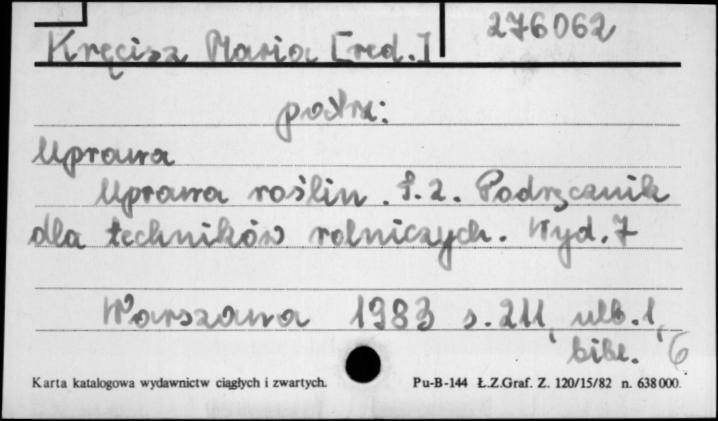 276062
Kręcisz Maria [red.]
patrz:
Uprawa
Uprawa roślin. T.2. Podręcznik
dla techników rolniczych. Wyd. 7
Warszawa 1983 s. 211, ulb. 1,
bibl. 6
Karta katalogowa wydawnictw ciągłych i zwartych. Pu-B-144 Ł.Z.Graf. Z. 120/15/82 n. 638000.